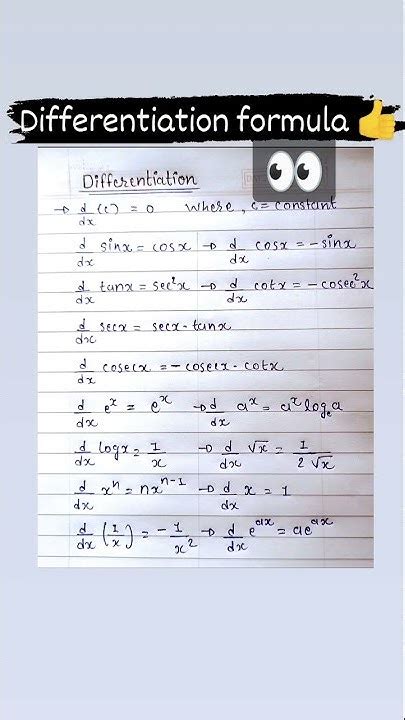 Differentiation formula 👍
Differentiation
→ d/dx (c) = 0 where, c = constant
d/dx sinx = cosx → d/dx cosx = -sinx
d/dx tanx = sec²x → d/dx cotx = -cosec²x
d/dx secx = secx·tanx
d/dx cosecx = -cosecx·cotx
d/dx eˣ = eˣ → d/dx aˣ = aˣ logₑa
d/dx logx = 1/x → d/dx √x = 1/2√x
d/dx xⁿ = nxⁿ⁻¹ → d/dx x = 1
d/dx (1/x) = -1/x² → d/dx eᵃˣ = aeᵃˣ